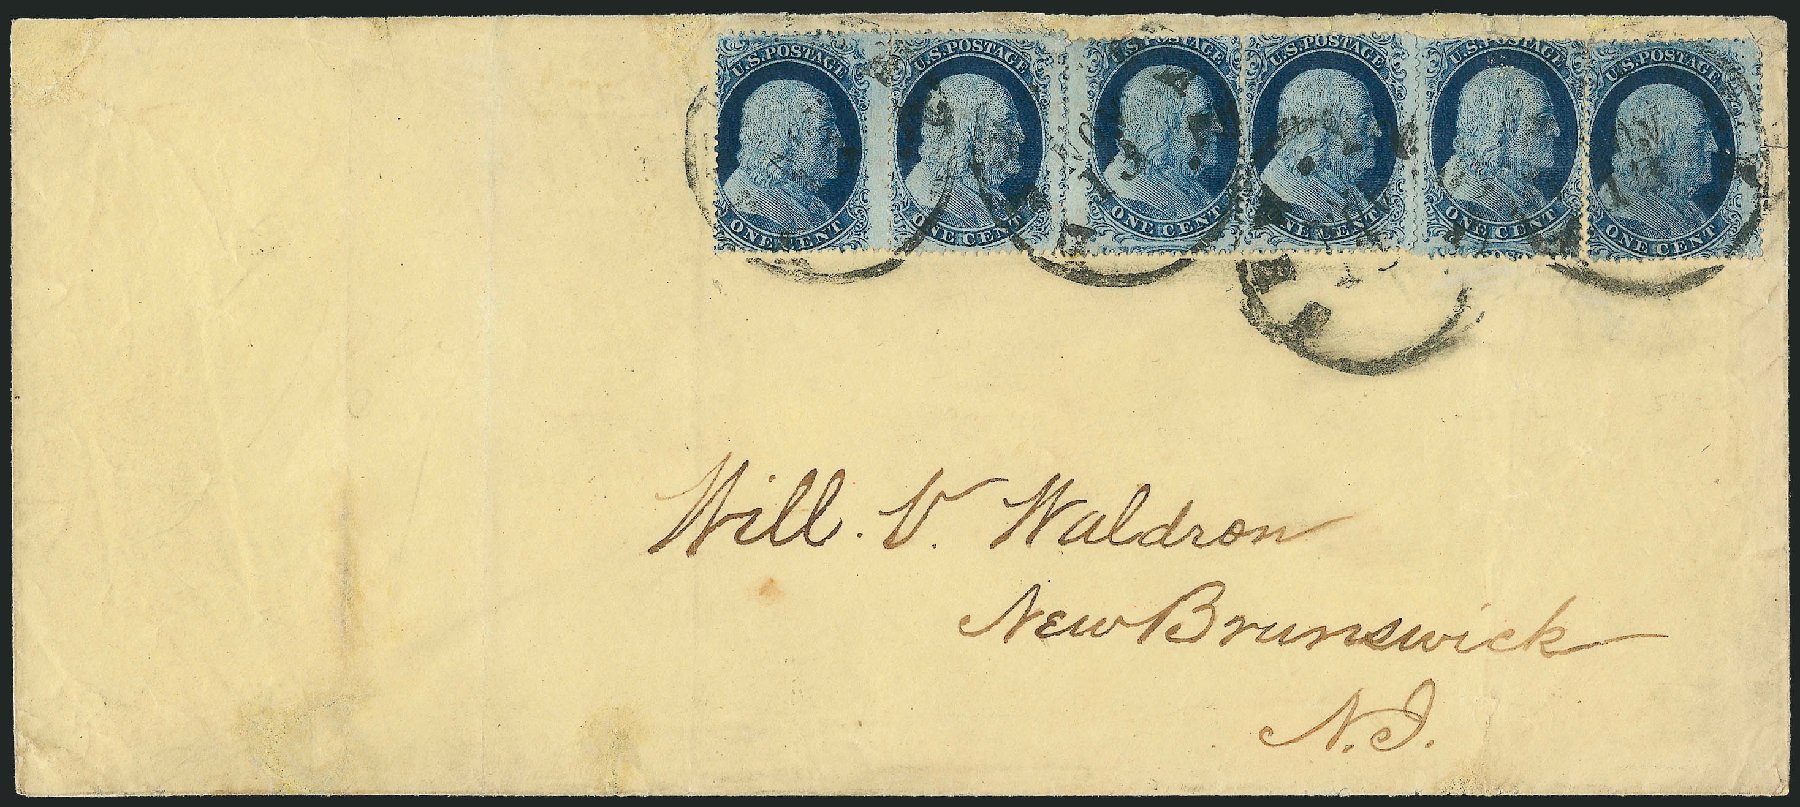 U.S. POSTAGE U.S. POSTAGE U.S. POSTAGE U.S. POSTAGE U.S. POSTAGE U.S. POSTAGE
ONE CENT ONE CENT ONE CENT ONE CENT ONE CENT ONE CENT
Will. V. Waldron
New Brunswick
N. J.